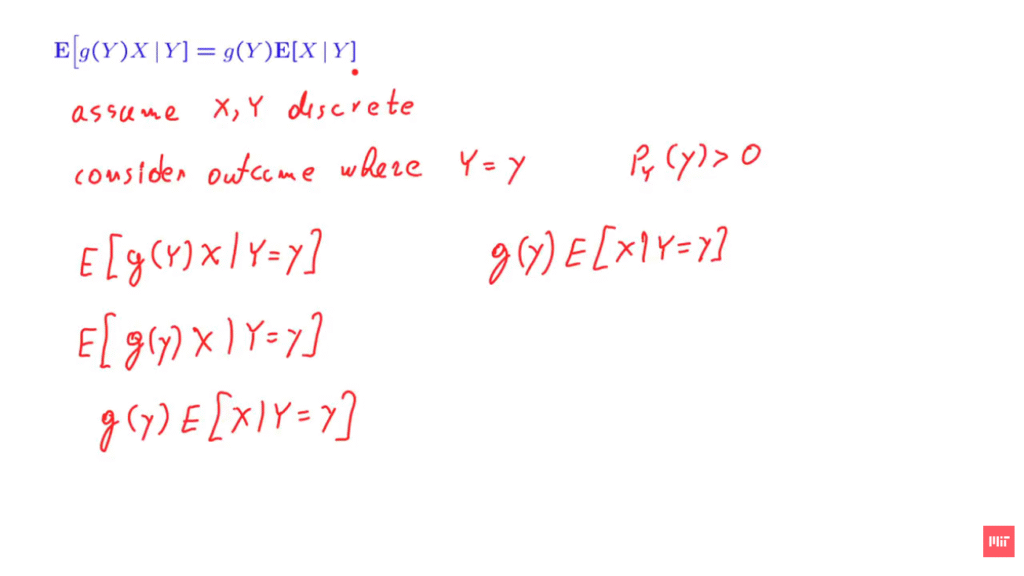 E[g(Y)X | Y] = g(Y)E[X | Y]
assume X, Y discrete
consider outcome where Y = y P_Y(y) > 0
E[g(Y)X | Y=y] g(y) E[X | Y=y]
E[g(y)X | Y=y]
g(y) E[X | Y=y]
MIT